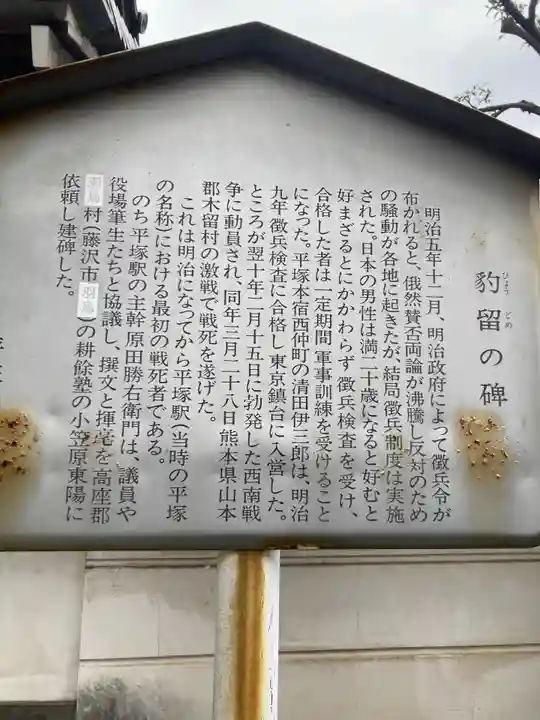 豹留の碑
ひょう どめ
明治五年十二月、明治政府によって徴兵令が
布かれると、俄然賛否両論が沸騰し反対のため
の騒動が各地に起きたが、結局徴兵制度は実施
された。日本の男性は満二十歳になると好むと
好まざるとにかかわらず徴兵検査を受け、
合格した者は一定期間軍事訓練を受けること
になった。平塚本宿西仲町の清田伊三郎は、明治
九年徴兵検査に合格し東京鎮台に入営した。
ところが翌十年二月十五日に勃発した西南戦
争に動員され、同年三月二十八日熊本県山本
郡木留村の激戦で戦死を遂げた。
これは明治になってから平塚駅(当時の平塚
の名称)における最初の戦死者である。
のち平塚駅の主幹原田勝右衛門は、議員や
役場筆生たちと協議し、撰文と揮毫を高座郡
羽鳥村(藤沢市羽鳥)の耕餘塾の小笠原東陽に
依頼し建碑した。